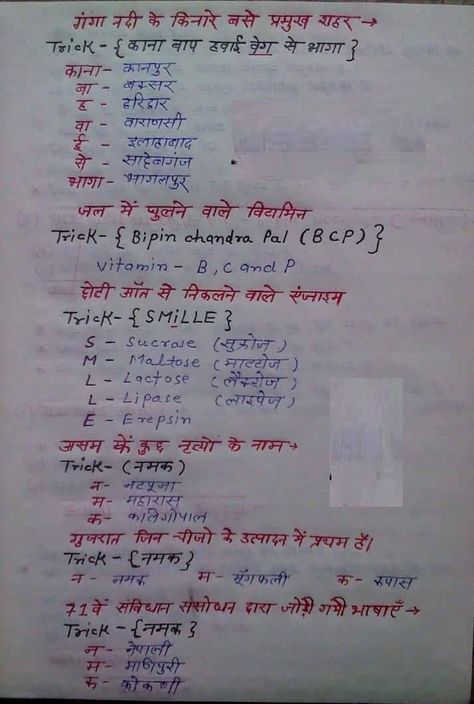 गंगा नदी के किनारे बसे प्रमुख शहर →
Trick - { काना बाप हवाई वेग से भागा }
काना - कानपुर
बा - बक्सर
ह - हरिद्वार
वा - वाराणसी
ई - इलाहाबाद
से - साहेबगंज
भागा - भागलपुर
जल में घुलने वाले विटामिन
Trick - { Bipin chandra Pal (BCP) }
Vitamin - B, C and P
छोटी आँत से निकलने वाले एंजाइम
Trick - { SMiLLE }
S - Sucrose (सुक्रोज)
M - Maltose (माल्टोज)
L - Lactose (लैक्टोज)
L - Lipase (लाइपेज)
E - Erepsin
असम के कुछ नृत्यों के नाम →
Trick - (नमक)
न - नटपूजा
म - महारास
क - कालिगोपाल
गुजरात जिन चीजो के उत्पादन में प्रथम है।
Trick - {नमक}
न - नमक म - मूँगफली क - कपास
71वें संविधान संसोधन द्वारा जोड़ी गयी भाषाएँ →
Trick - {नमक}
न - नेपाली
म - माणिपुरी
क - कोंकणी